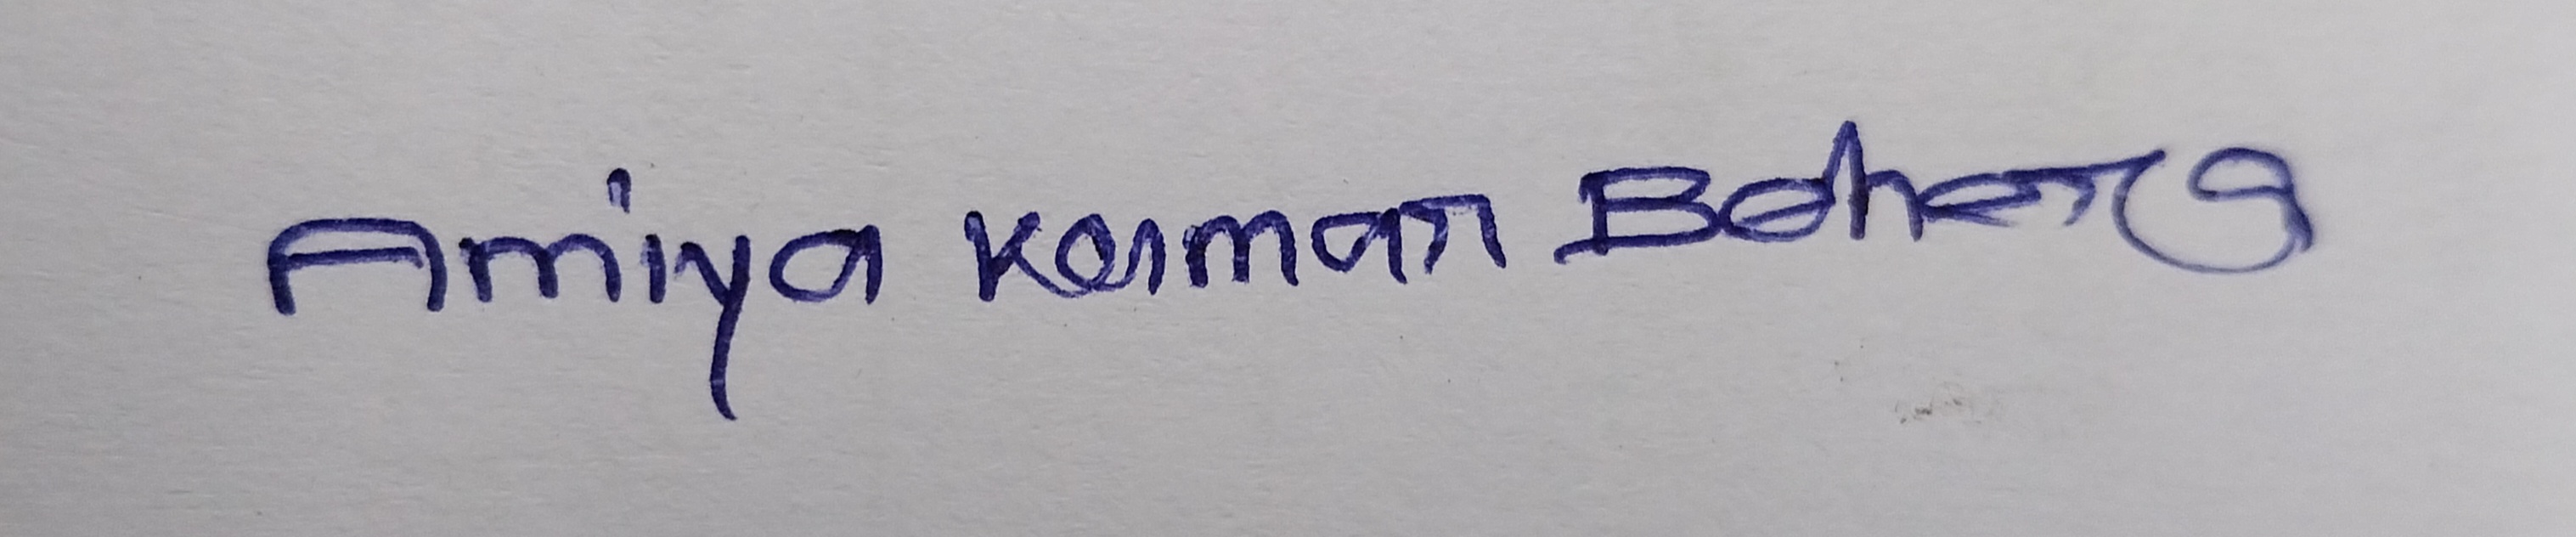 Amiya Kumar Behera